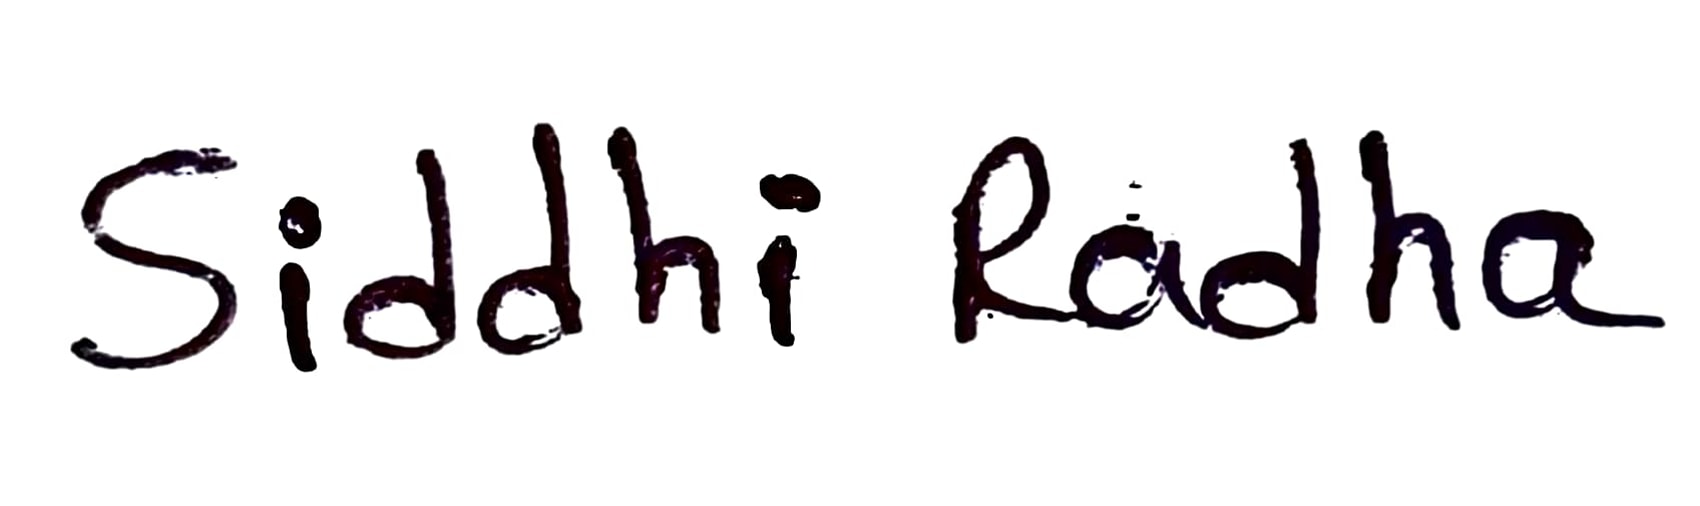 Siddhi Radha